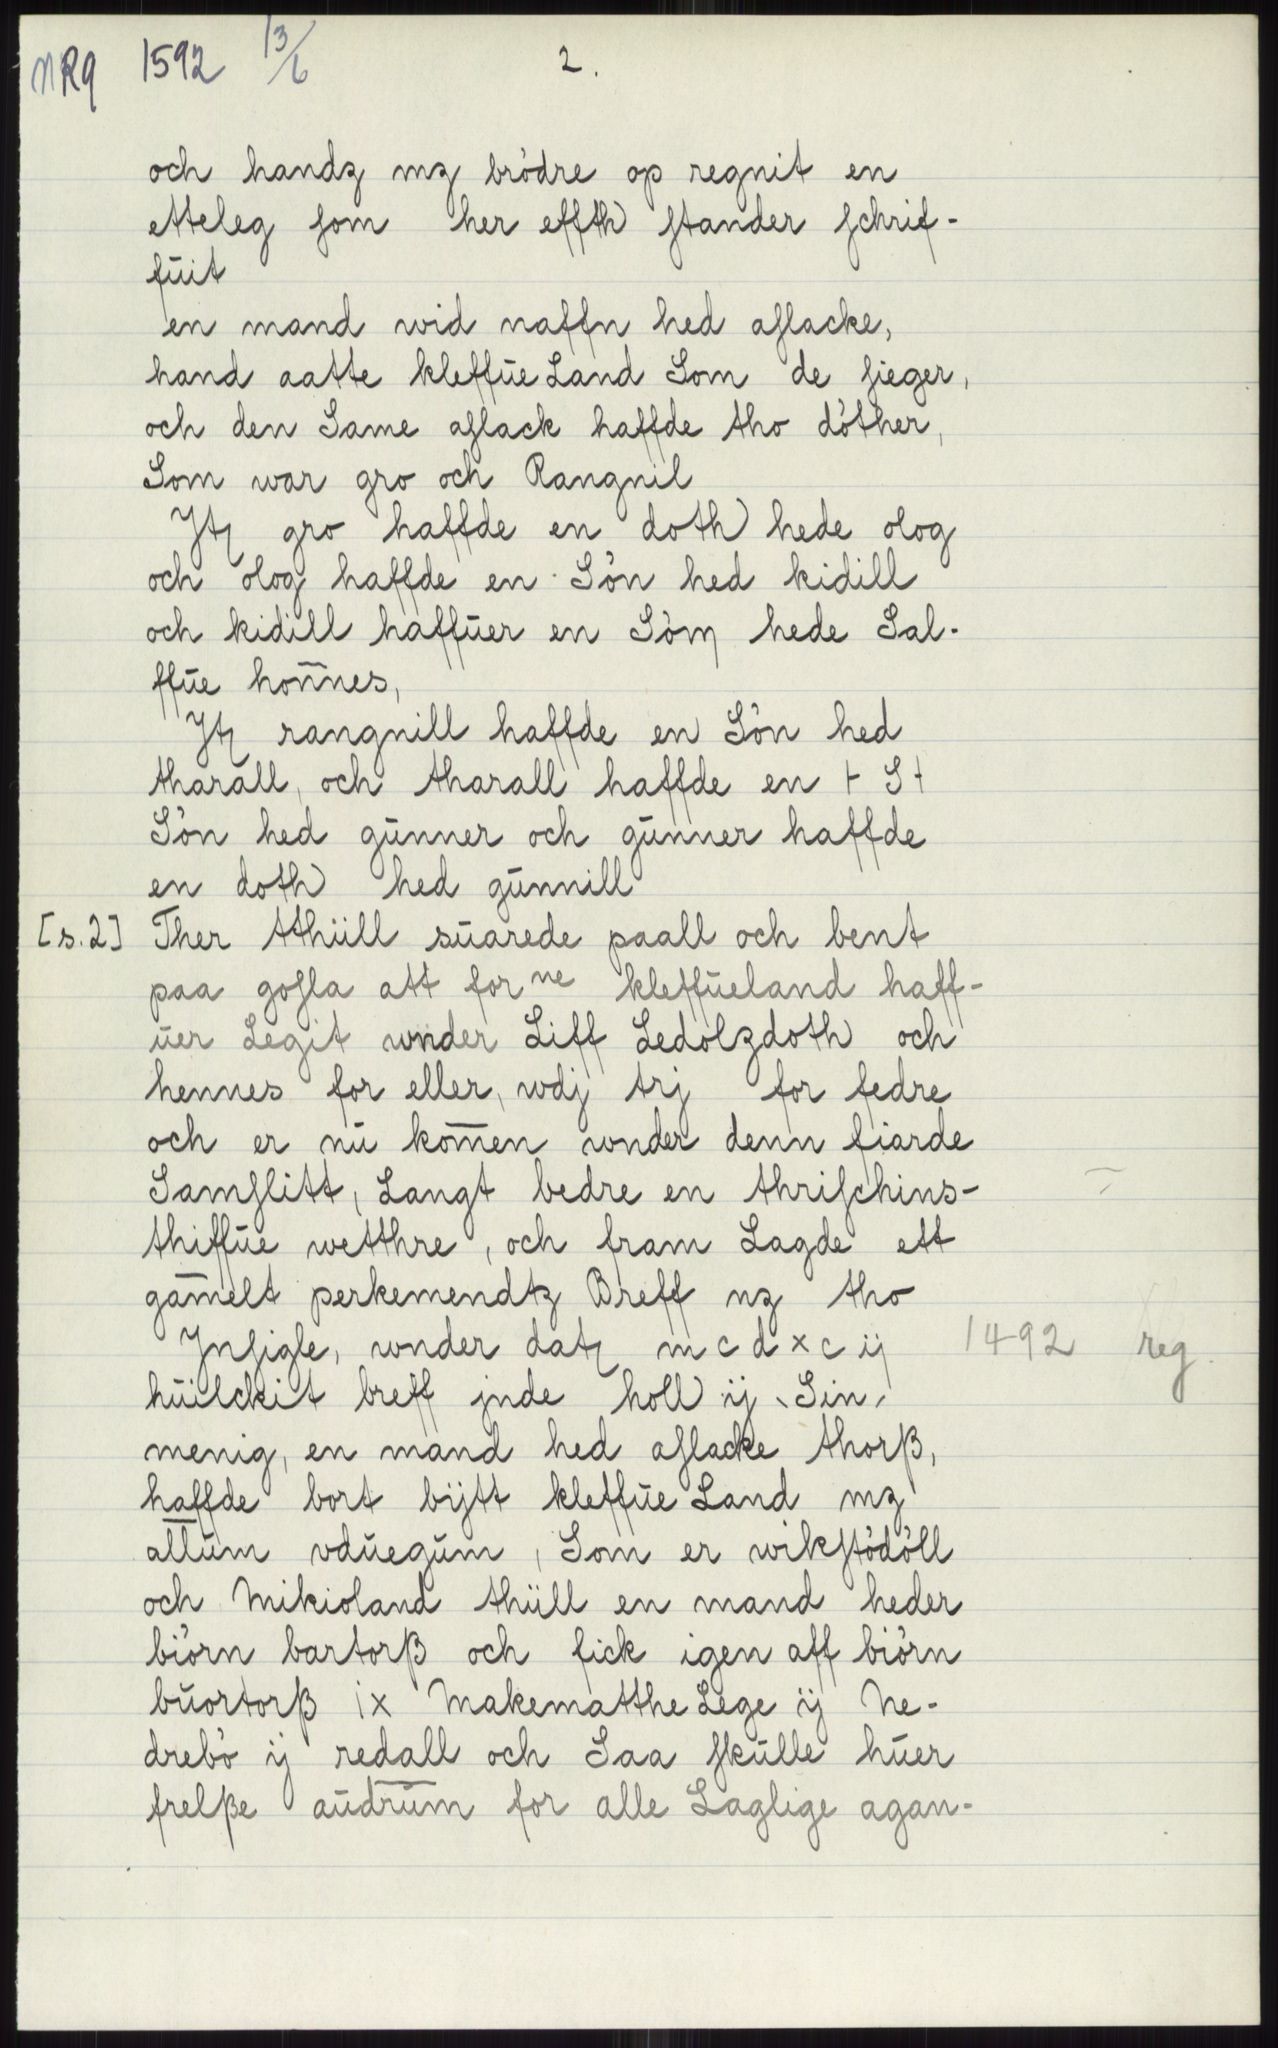 NRq 1592 13/6 2.
och handz mz brödre op regnit en
etteleg som her effth stander schrif-
fuit
en mand wid naffn hed aslacke,
hand aatte kleffue Land Som de sieger,
och den Same aslack haffde tho döther,
Som war gro och Rangnil
Jtz gro haffde en doth hede olog
och olog haffde en Sön hed kidill
och kidill haffuer en Söm hede Sal-
ffue honnes,
Jtz rangnill haffde en Sön hed
tharall, och tharall haffde en + S +
Sön hed gunner och gunner haffde
en doth hed gunnill
[s. 2] Ther tthiill suarede paall och bent
paa gosla att for ne kleffueland haff-
uer Legit wnder Liff Ledolzdoth och
hennes for eller, wdj trj for fedre
och er nu komen wnder denn fiarde
Samslitt, Langt bedre en thrischins-
thiffue wetthre, och fram Lagde ett
gamelt perkemendtz Breff mz tho
Jnsigle, wnder datz m c d x c ij 1492 reg.
huilckit breff jnde holl ij Sin
menig, en mand hed aslacke thorß,
haffde bort bijtt kleffue Land mz
allum vduegum, Som er wikstödöll
och Mikioland thiill en mand heder
biörn bartorß och fick igen aff biörn
buortorß ix Makematthe Lege ij Ne-
drebö ij redall och Saa skulle huer
frelße audrum for alle Laglige agan-